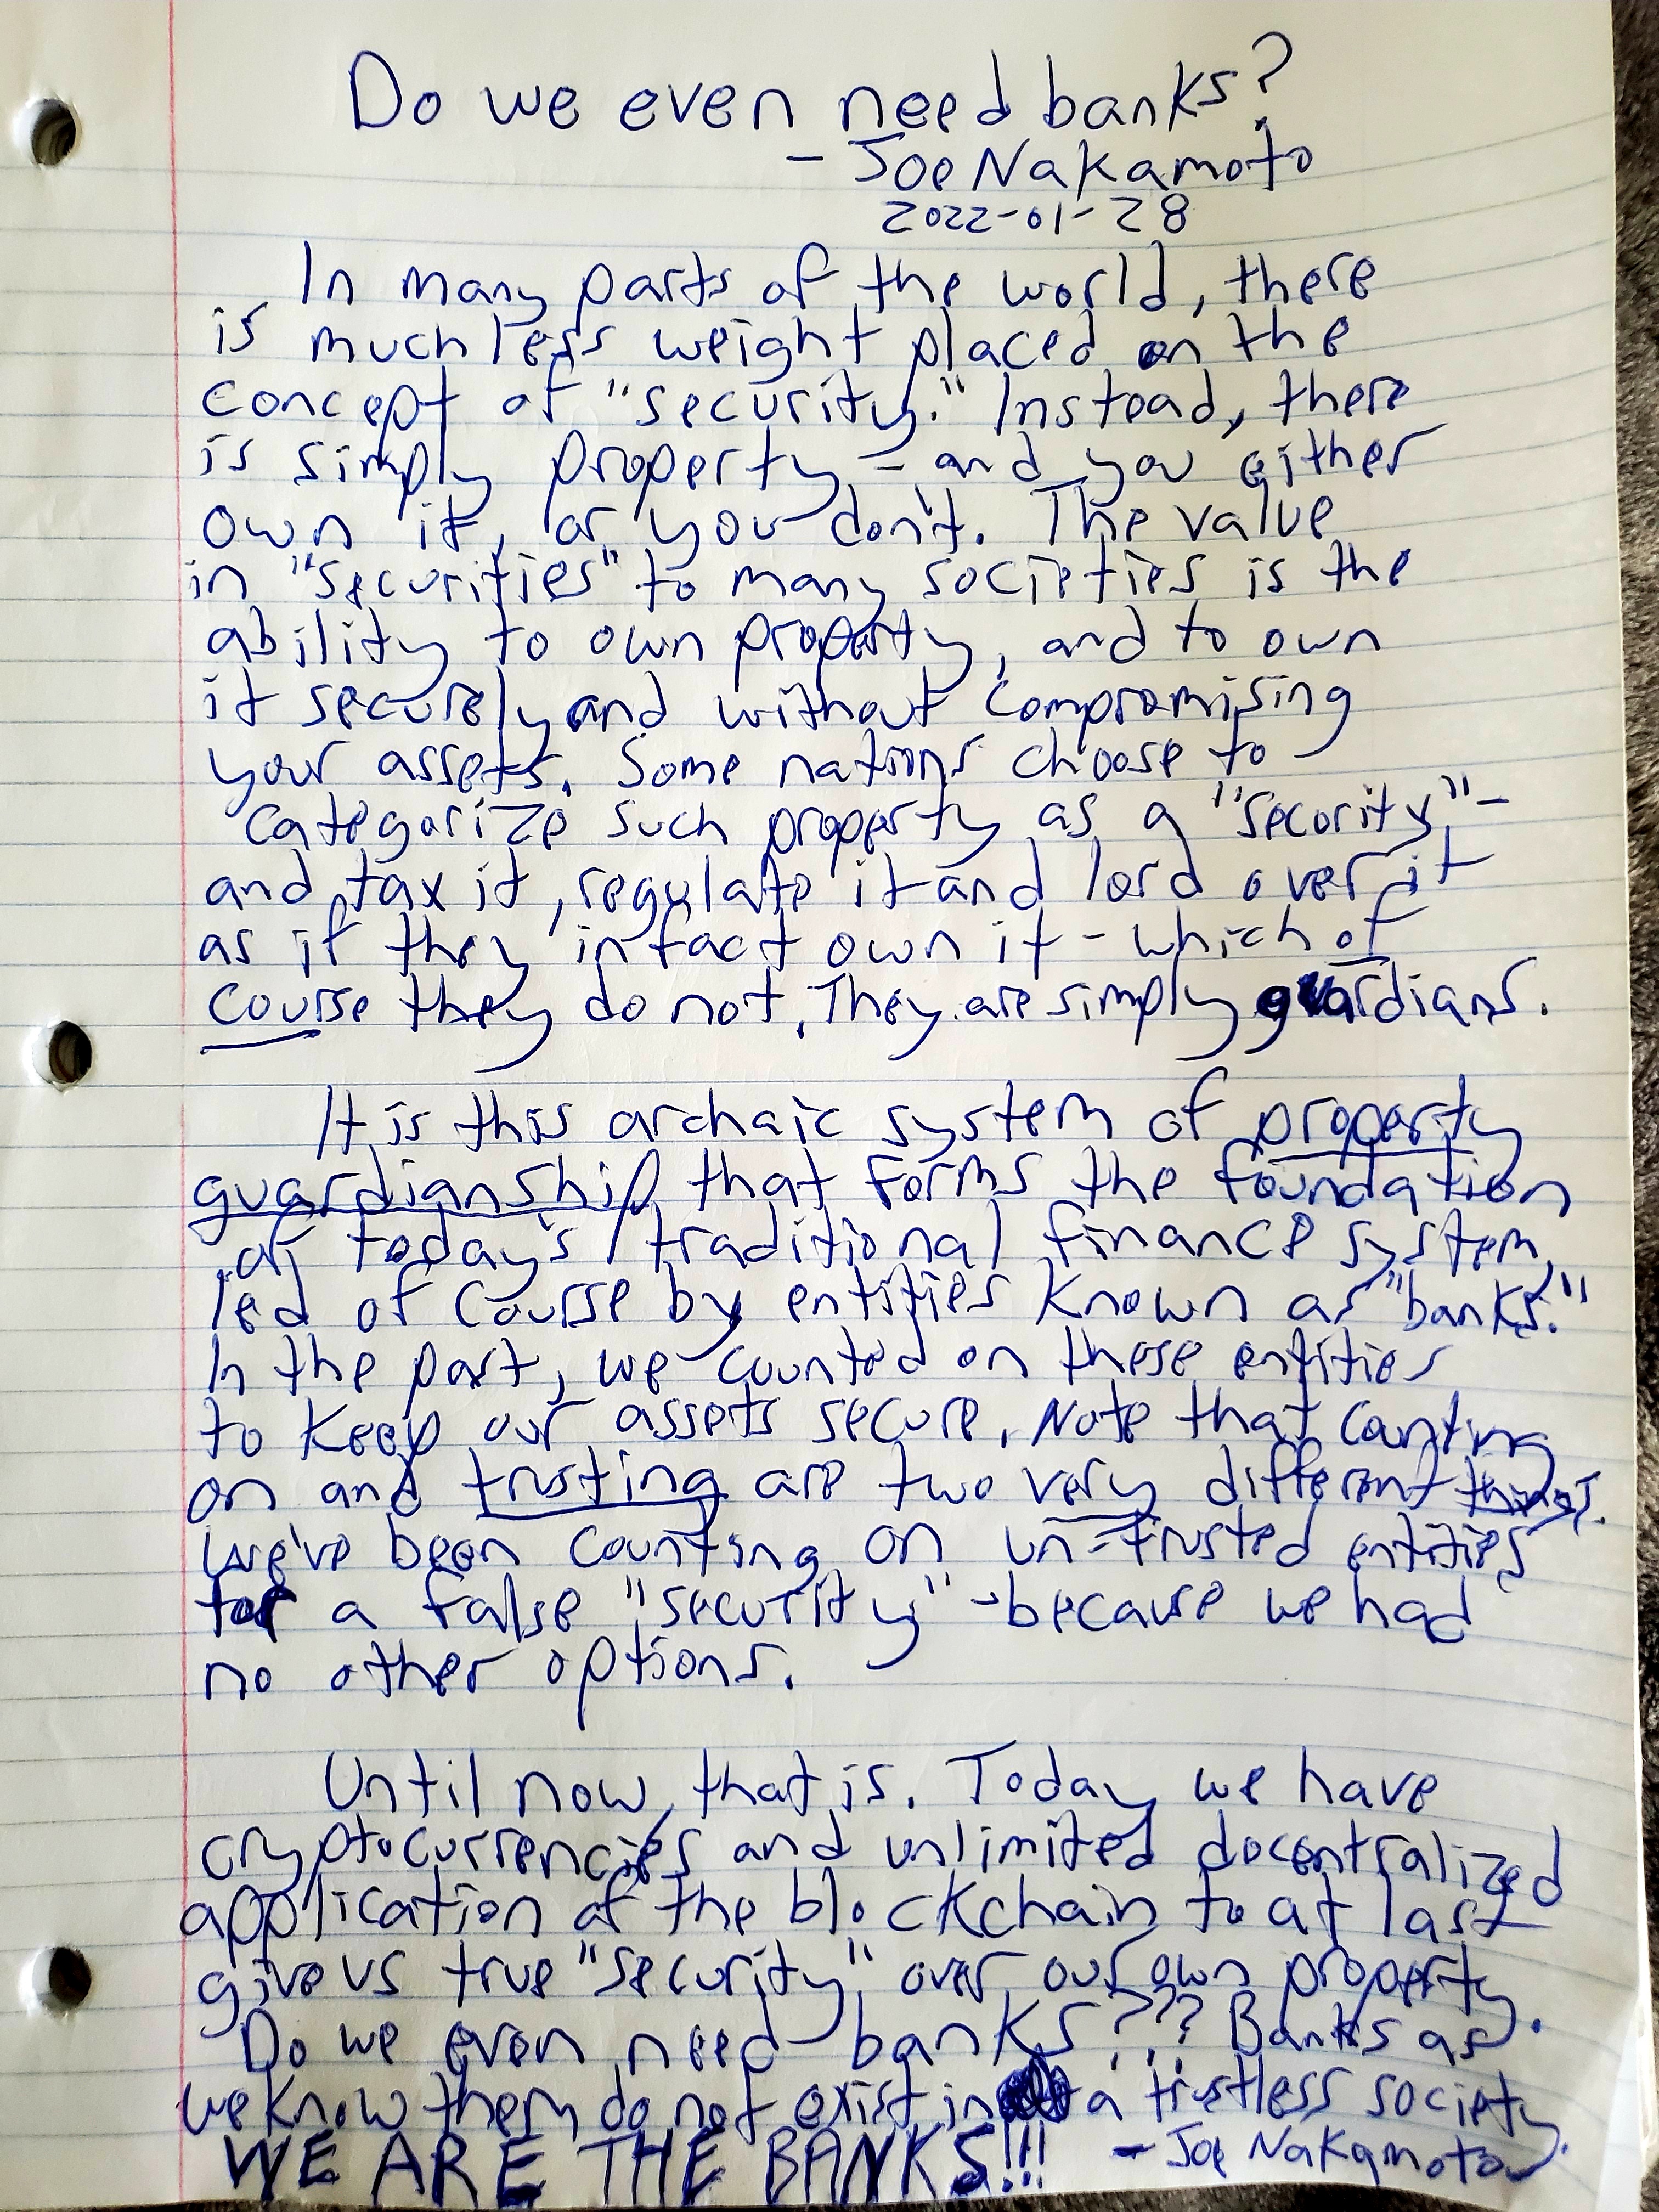 Do we even need banks?
- Joe Nakamoto
2022-01-28
In many parts of the world, there
is much less weight placed on the
concept of "security." Instead, there
is simply property - and you either
own it, or you don't. The value
in "securities" to many societies is the
ability to own property, and to own
it securely and without compromising
your assets. Some nations choose to
categorize such property as a "security" -
and tax it, regulate it and lord over it
as if they in fact own it - which of
course they do not. They are simply guardians.
It is this archaic system of property
guardianship that forms the foundation
of today's traditional finance system,
led of course by entities known as "banks."
In the past, we counted on these entities
to keep our assets secure. Note that counting
on and trusting are two very different things.
We've been counting on un-trusted entities
for a false "security" - because we had
no other options.
Until now, that is. Today we have
cryptocurrencies and unlimited decentralized
application of the blockchain to at last
give us true "security" over our own property.
Do we even need banks??? Banks as
we know them do not exist in a trustless society.
WE ARE THE BANKS!!! - Joe Nakamoto